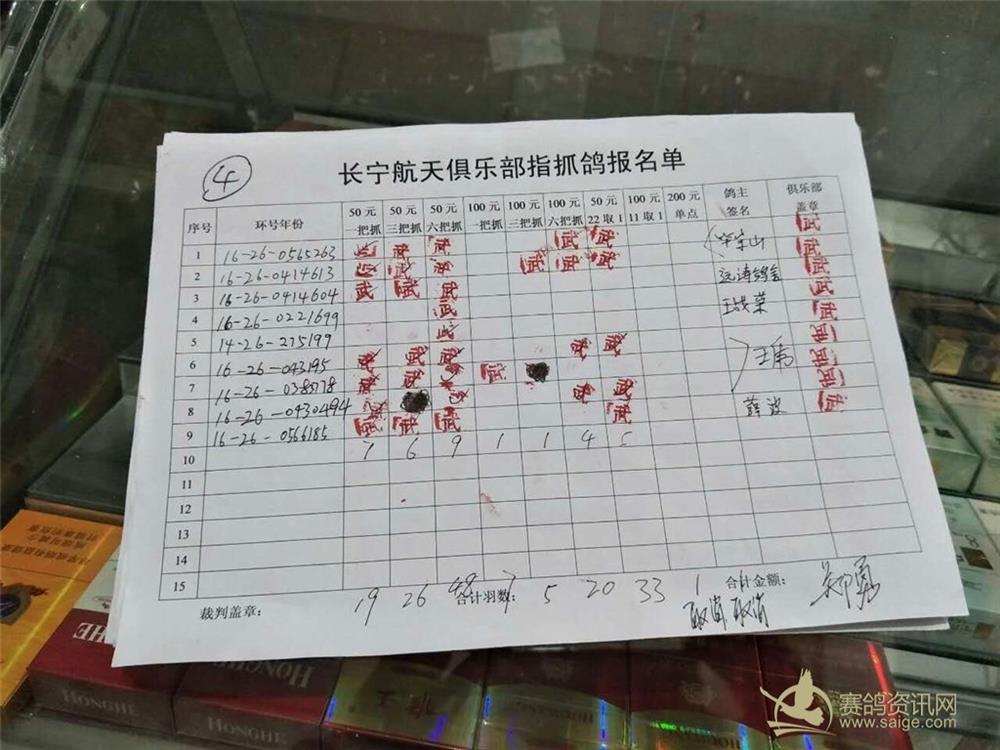 4
长宁航天俱乐部指抓鸽报名单
序号 环号年份 50元一把抓 50元三把抓 50元六把抓 100元一把抓 100元三把抓 100元六把抓 50元22取1 100元11取1 200元单点 鸽主签名 俱乐部盖章
1 16-26-0565263 武 武 武 武 武
2 16-26-0414613 武 武 武 武 武 武
3 16-26-0414604 武 武 武 武
4 16-26-0221699 武 王战荣 武
5 14-26-275199 武 武
6 16-26-043195 武 武 武 武 武 王虎 武
7 16-26-0385178 武 武 武 武 武
8 16-26-0430494 武 武 武 武 薛波 武
9 16-26-0566185 武 武 武 武
10 7 6 9 1 1 4 5
11
12
13
14
15
裁判盖章： 合计羽数： 合计金额：
19 26 48 7 5 20 33 1 郑勇
取消 取消
HONGHE
HONGHE
赛鸽资讯网
www.saige.com